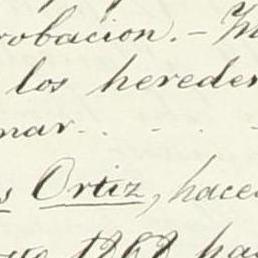 robacion. -
los hereder
nar. . . .
s Ortiz, hace
1868 ha